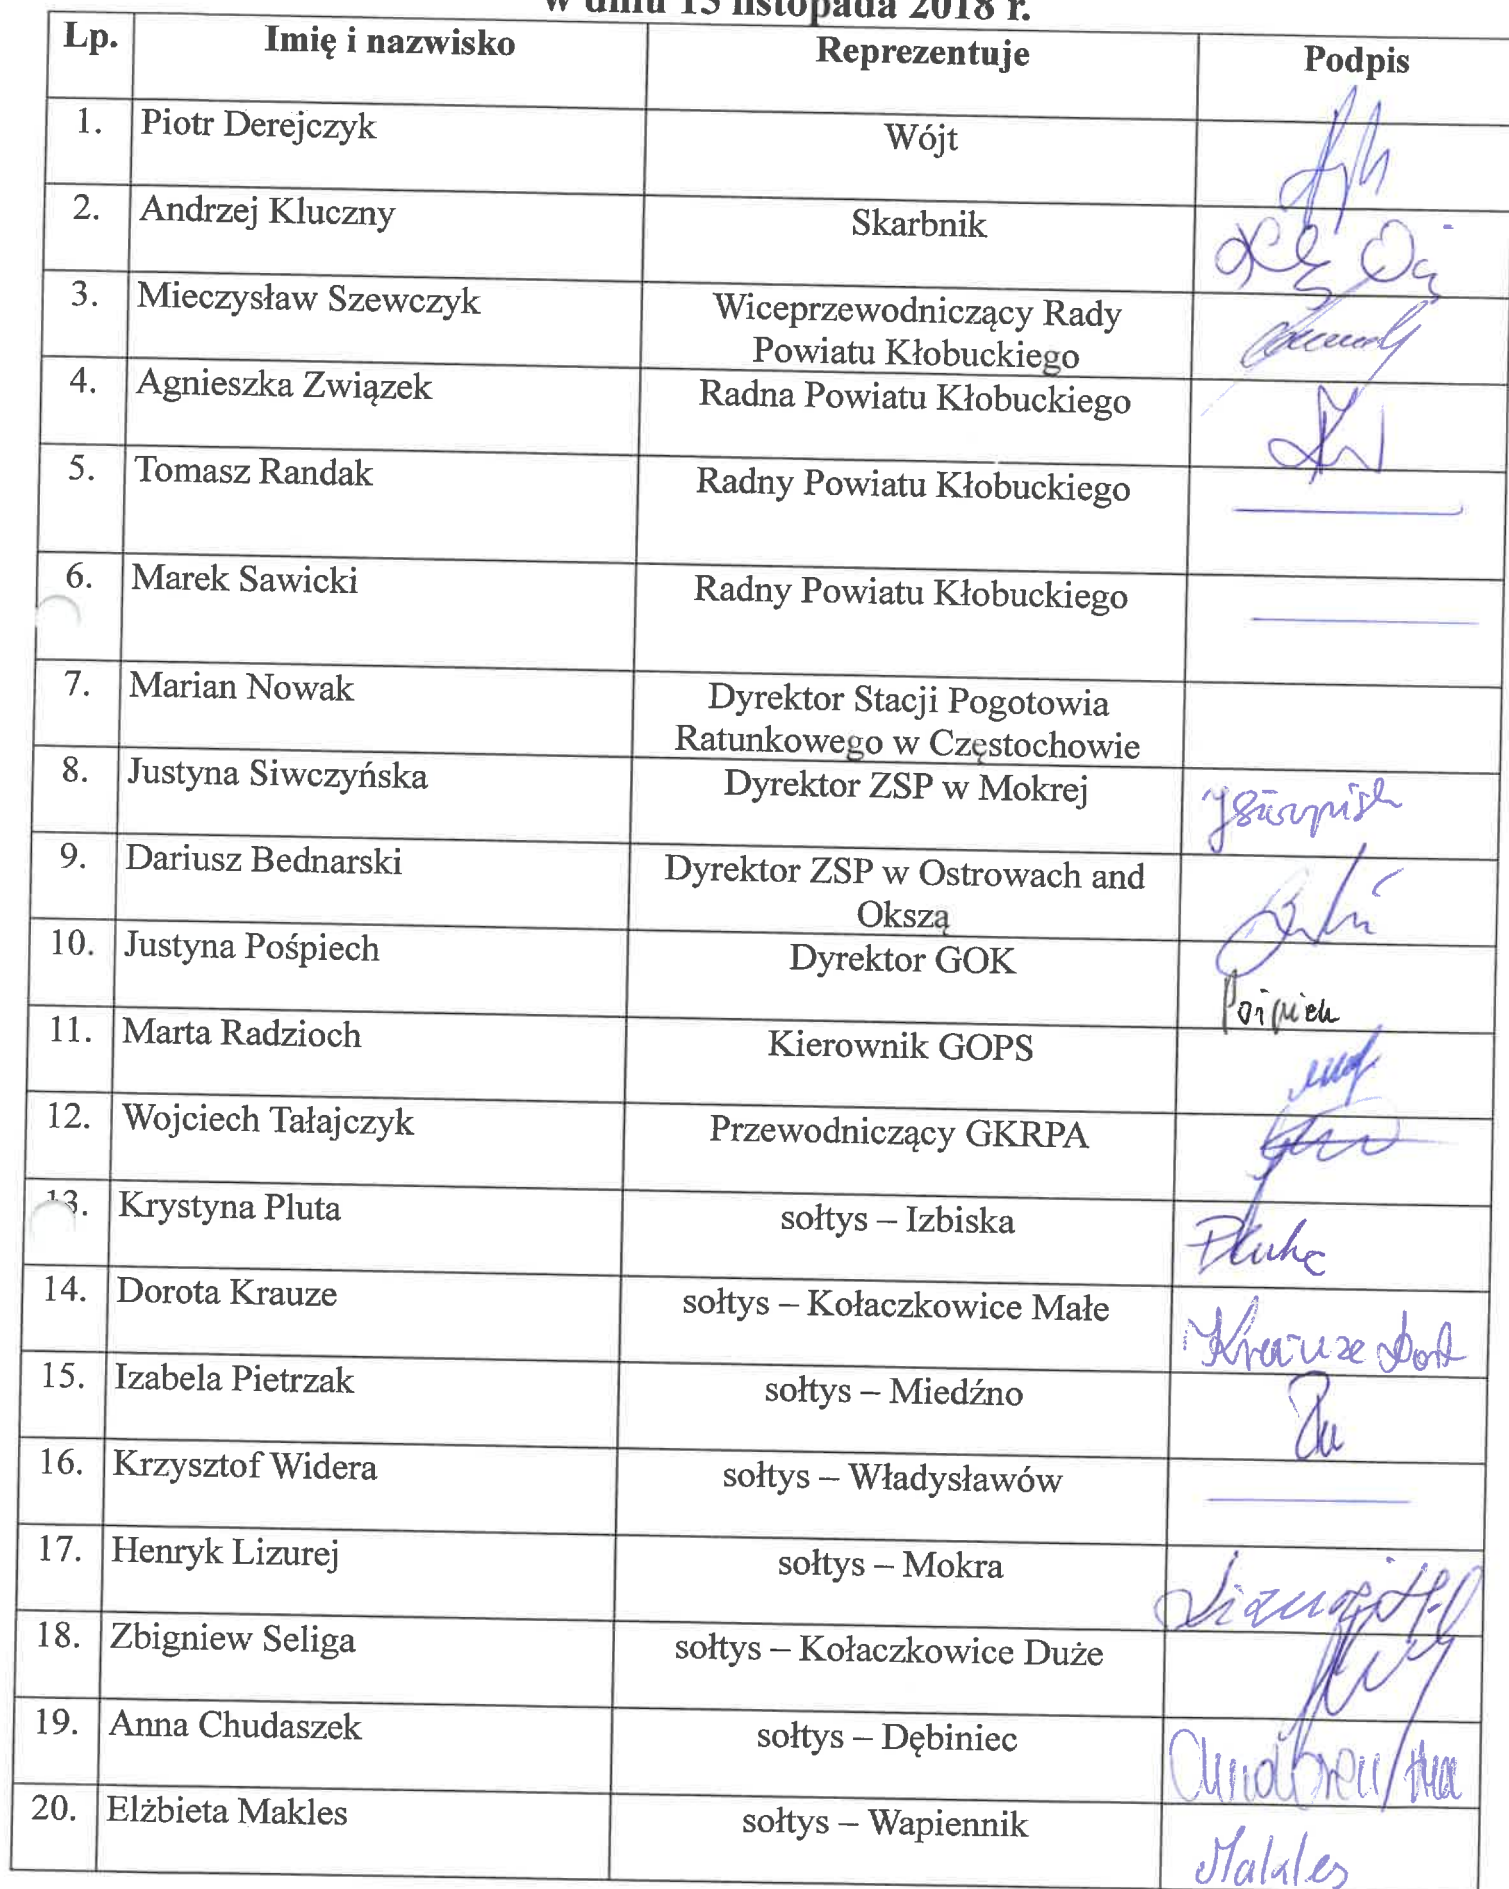 w dniu 15 listopada 2018 r.
Lp. Imię i nazwisko Reprezentuje Podpis
1. Piotr Derejczyk Wójt
2. Andrzej Kluczny Skarbnik
3. Mieczysław Szewczyk Wiceprzewodniczący Rady
Powiatu Kłobuckiego
4. Agnieszka Związek Radna Powiatu Kłobuckiego
5. Tomasz Randak Radny Powiatu Kłobuckiego
6. Marek Sawicki Radny Powiatu Kłobuckiego
7. Marian Nowak Dyrektor Stacji Pogotowia
Ratunkowego w Częstochowie
8. Justyna Siwczyńska Dyrektor ZSP w Mokrej
9. Dariusz Bednarski Dyrektor ZSP w Ostrowach and
Okszą
10. Justyna Pośpiech Dyrektor GOK Pośpiech
11. Marta Radzioch Kierownik GOPS
12. Wojciech Tałajczyk Przewodniczący GKRPA
13. Krystyna Pluta sołtys – Izbiska Pluta
14. Dorota Krauze sołtys – Kołaczkowice Małe Krauze Dorot
15. Izabela Pietrzak sołtys – Miedźno
16. Krzysztof Widera sołtys – Władysławów
17. Henryk Lizurej sołtys – Mokra Lizurej H.
18. Zbigniew Seliga sołtys – Kołaczkowice Duże
19. Anna Chudaszek sołtys – Dębiniec
20. Elżbieta Makles sołtys – Wapiennik Makles